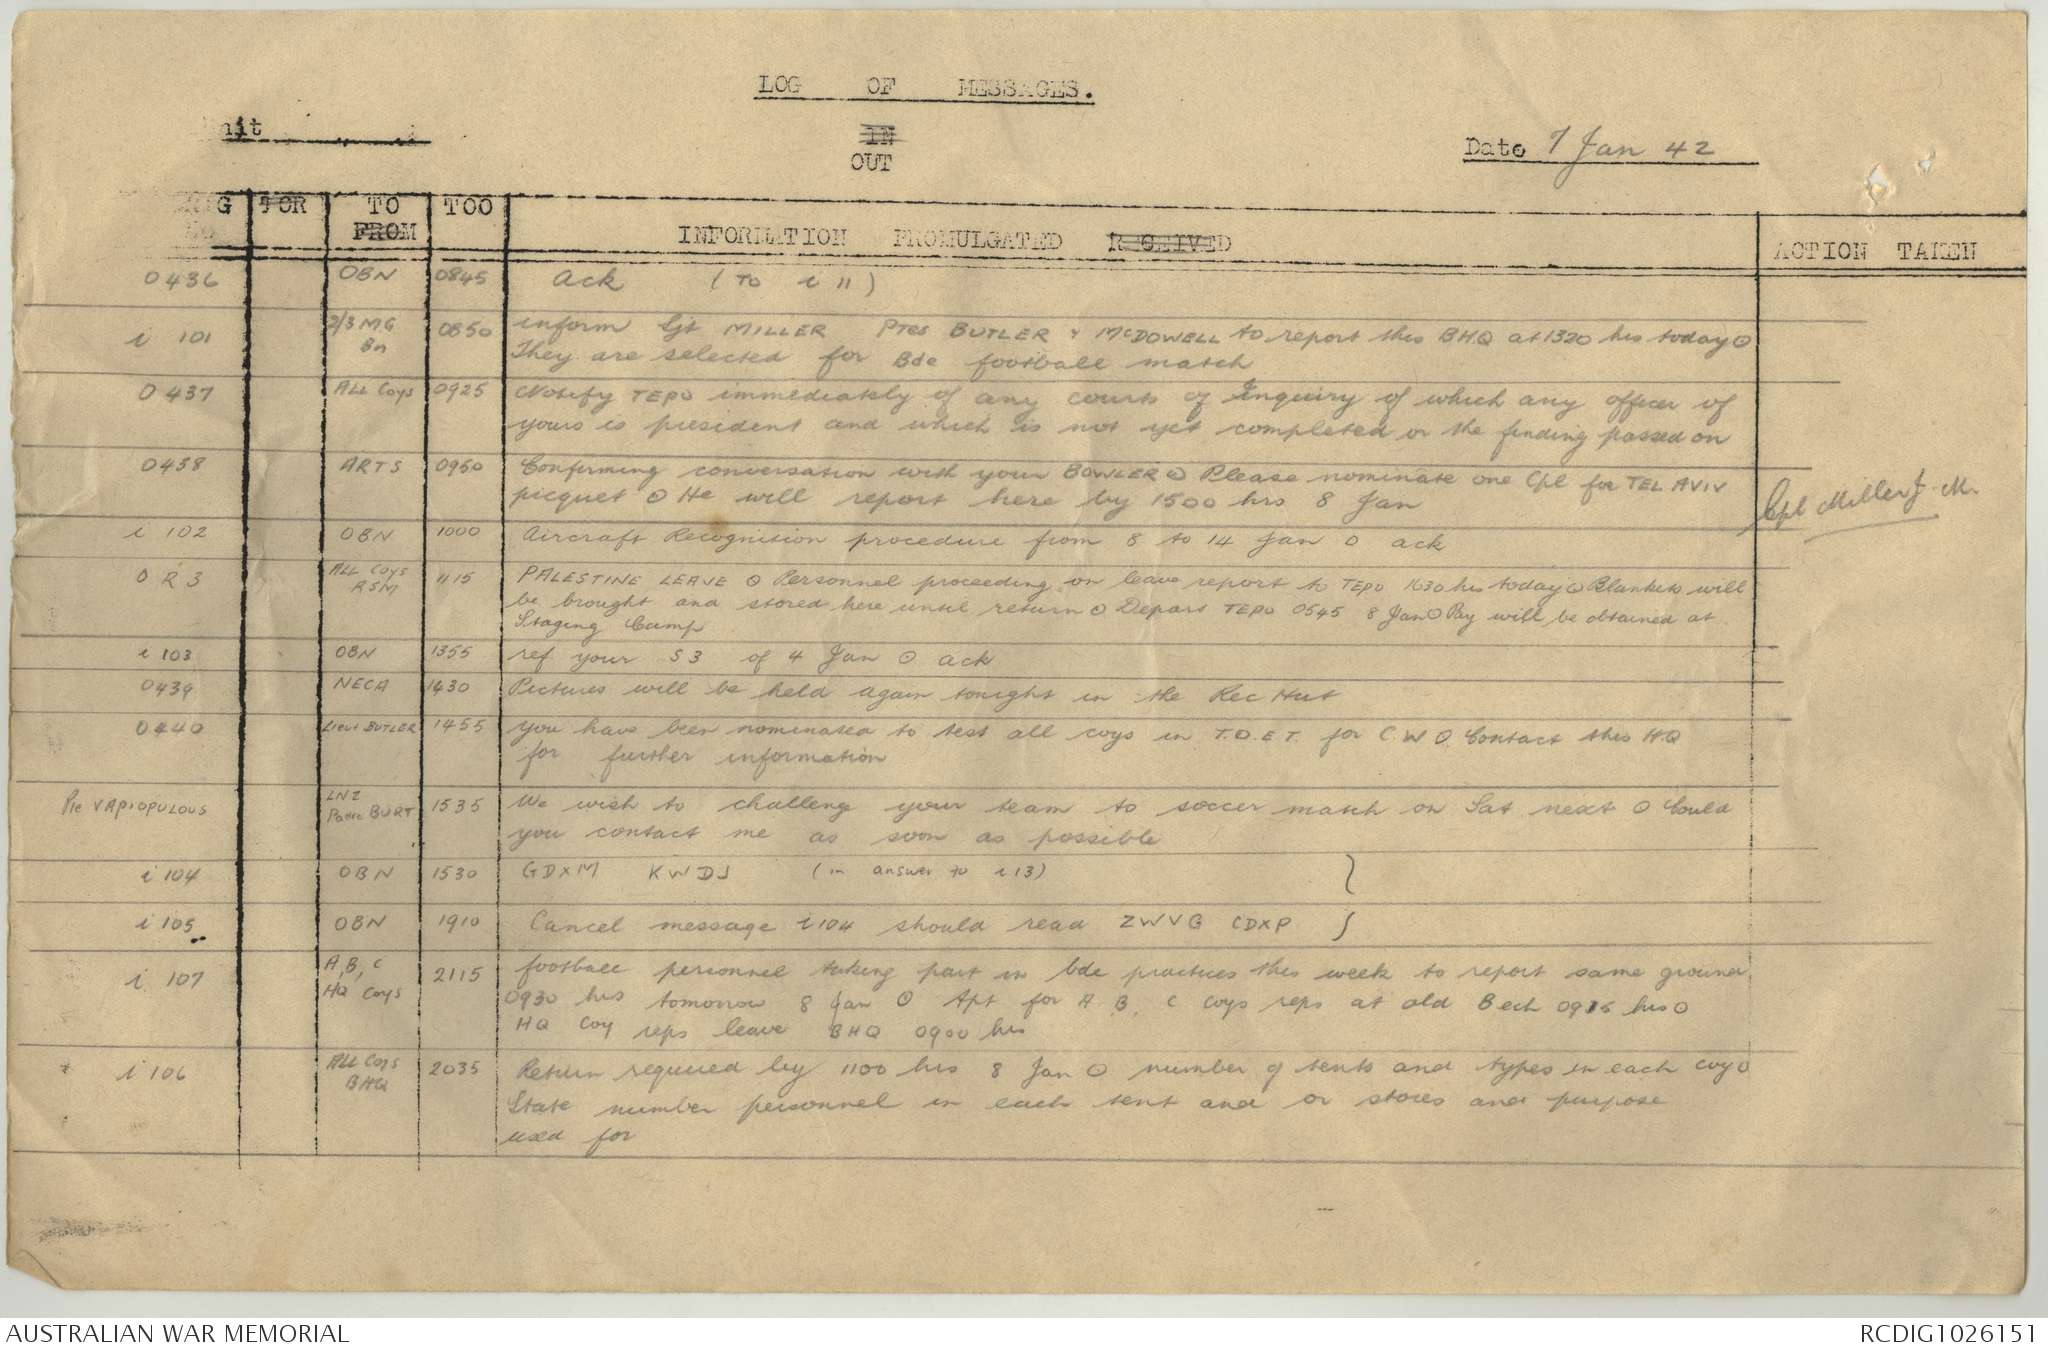 LOG OF MESSAGES.
Unit
IN
OUT
Date 7 Jan 42
ORIG NO
TOR
TO FROM
TOO
INFORMATION PROMULGATED RECEIVED
ACTION TAKEN
0436 OBN 0845 Ack (To i 11)
i 101 2/3 MG Bn 0850 inform Sjt MILLER Ptes BUTLER & McDOWELL to report this BHQ at 1320 hrs today ⊙
They are selected for Bde football match
0437 ALL Coys 0925 Notify TEPO immediately of any courts of Inquiry of which any officer of
yours is president and which is not yet completed or the finding passed on
0438 ARTS 0950 Confirming conversation with your BOWLER ⊙ Please nominate one Cpl for TEL AVIV
picquet ⊙ He will report here by 1500 hrs 8 Jan
Cpl Miller J. M.
i 102 OBN 1000 Aircraft Recognition procedure from 8 to 14 Jan ⊙ ack
0 R 3 ALL Coys RSM 1115 PALESTINE LEAVE ⊙ Personnel proceeding on leave report to TEPO 1630 hrs today ⊙ Blankets will
be brought and stored here until return ⊙ Depart TEPO 0545 8 Jan ⊙ Pay will be obtained at
Staging Camp
i 103 OBN 1355 ref your S3 of 4 Jan ⊙ ack
0439 NECA 1430 Pictures will be held again tonight in the Rec Hut
0440 Lieut BUTLER 1455 you have been nominated to test all coys in T.O.E.T. for C.W ⊙ Contact this HQ
for further information
Pte VAPIOPULOUS LNZ Patrc BURT 1535 We wish to challeng your team to soccer match on Sat next ⊙ Could
you contact me as soon as possible
i 104 OBN 1530 GDXM KWDJ (in answer to i 13)
i 105 OBN 1910 Cancel message i 104 should read ZWVG CDXP
i 107 A, B, C HQ Coys 2115 football personnel taking part in bde practices this week to report same ground
0930 hrs tomorrow 8 Jan ⊙ Apt for A, B, C Coys reps at old B ech 0915 hrs ⊙
HQ Coy reps leave BHQ 0900 hrs
* i 106 ALL Coys BHQ 2035 Return required by 1100 hrs 8 Jan ⊙ number of tents and types in each coy ⊙
State number personnel in each tent and or stores and purpose
used for
AUSTRALIAN WAR MEMORIAL
RCDIG1026151